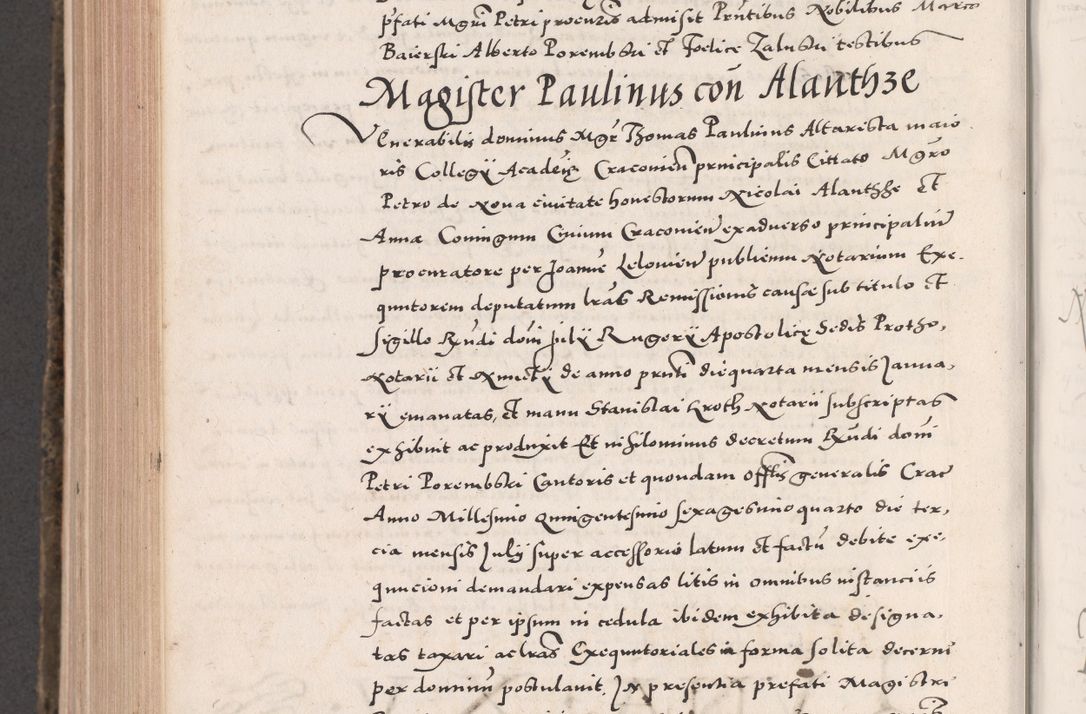 pfati Mgri Petri procuris admisit Pntibus Nobilibus Marco
Baierski Alberto Porembski et Foelice Zaluski testibus
Magister Paulinus con Alanthze
Venerabilis dominus Mgr Thomas Paulinus Altarista maio
ris Collegÿ Academiæ Cracouien principalis Cittato Mgro
Petro de Noua ciuitate honestorum Nicolai Alanthze et
Annæ Coniugum Ciuium Cracouien ex aduerso principaliu
procuratore per Joanne Lelouien publicum Notarium Exe-
quutorem deputatum lras Remissionis causæ sub titulo et
sigillo Rudi domi Julÿ Rugerÿ Apostolicę Sedis Protho,
Notarii et Nunctÿ de anno pnti die quarta mensis Janua,
rÿ emanatas, et manu Stanislai Kroth Notarii subscriptas
exhibuit ac produxit Et nihilominus decretum Rudi domi
Petri Porembski Cantoris et quondam Offlis generalis Crac
Anno Millesimo quingentesimo sexagesimo quarto die ter,
cia mensis Julÿ super accessorio latum et factu debite exe-
quucioni demandari expensas litis in omnibus instanciis
factas et per ipsum in cedula ibidem exhibita designa,
tas taxari ac lras Exequutoriales in forma solita decerni
per dominu postulauit, In presentia prefati Magistri